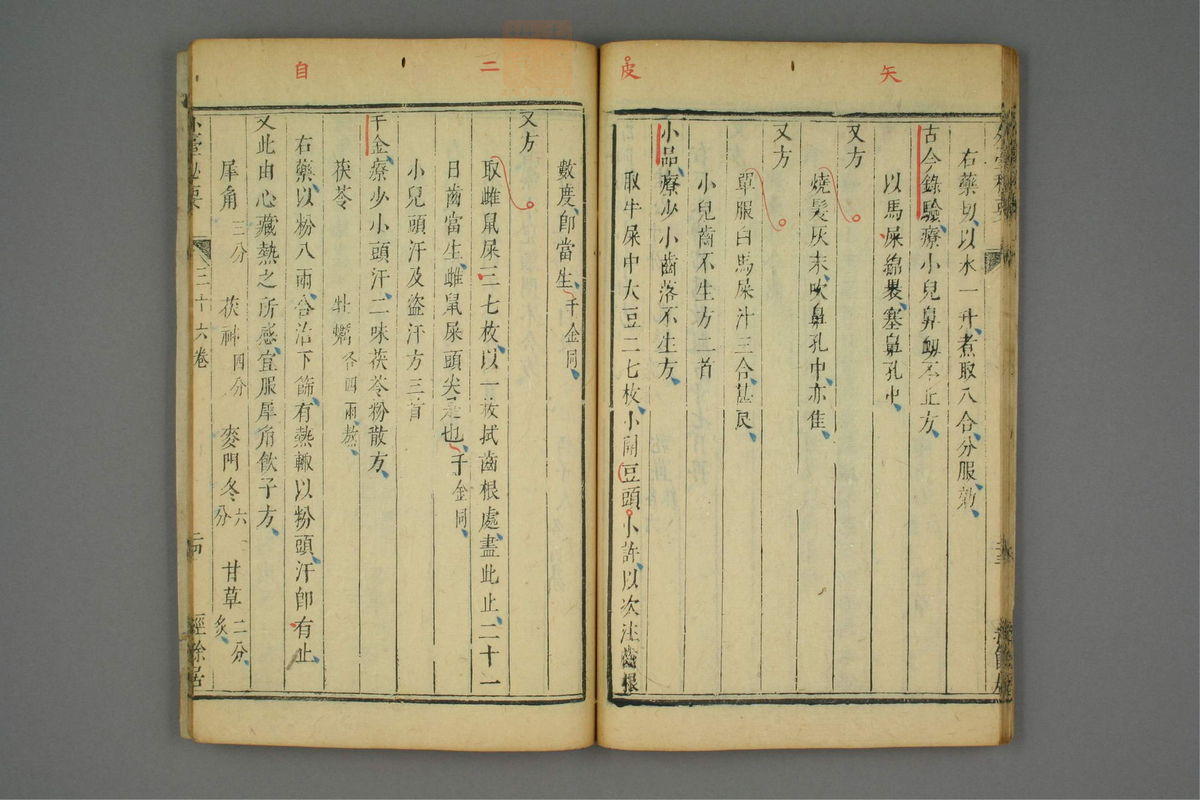 矢
皮
右藥切以水一升煮取八合分服瘥
古今錄驗療小兒鼻衂不止方
以馬屎綿裹塞鼻孔中
又方
燒髮灰末吹鼻孔中亦佳
又方
單服白馬屎汁三合甚良
小兒齒不生方二首
小品療少小齒落不生方
取牛屎中大豆二七枚小開豆頭小許以次注齒根
二
自
數度即當生千金同
又方
取雌鼠屎三七枚以一枚拭齒根處盡此止二十一
日齒當生雌鼠屎頭尖是也千金同
小兒頭汗及盜汗方三首
千金療少小頭汗二味茯苓粉散方
茯苓 牡蠣各四兩熬
右藥以粉八兩合治下篩有熱輙以粉頭汗即有止
又此由心藏熱之所感宜服犀角飲子方
犀角三分 茯神四分 麥門冬六分 甘草二分炙
三十六卷
經餘居